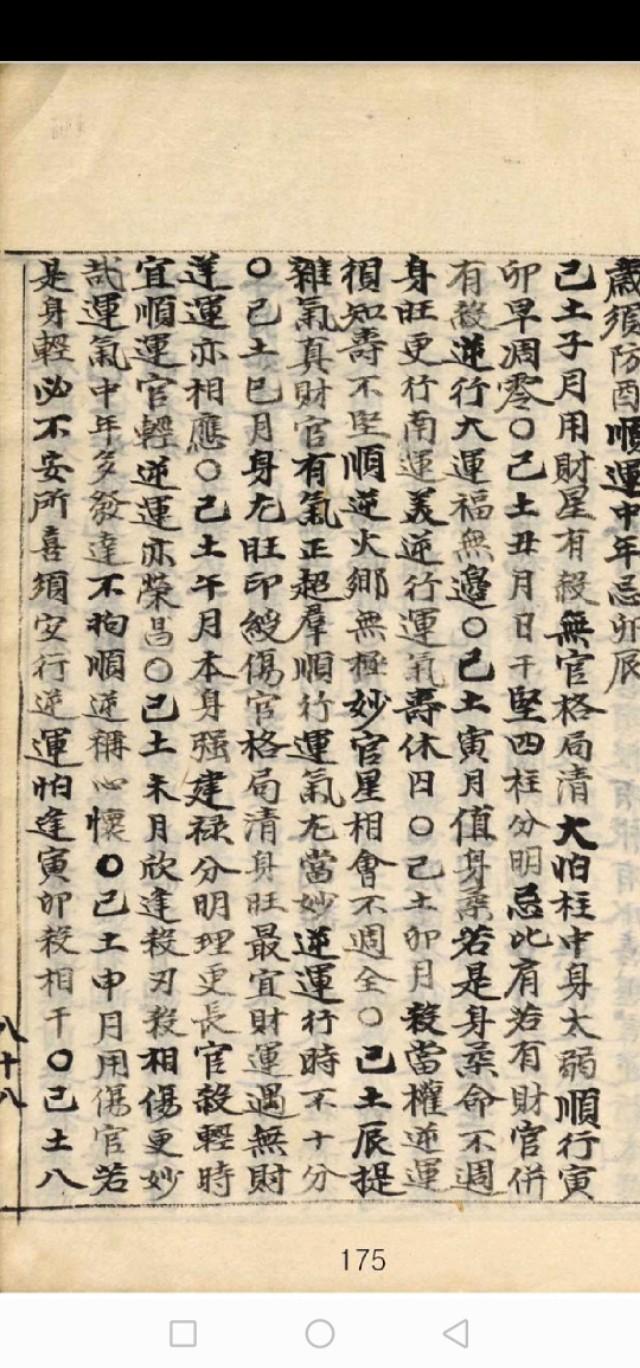 歲須防酉順運中年忌卯辰
己土子月用財星有殺無官格局清大怕柱中身太弱順行寅
卯早凋零○己土丑月日干堅四柱分明忌比肩若有財官併
有殺逆行大運福無邊○己土寅月值身柔若是身柔命不週
身旺更行南運美逆行運氣壽休囚○己土卯月殺當權逆運
須知壽不堅順逆火鄉無極妙官星相會不週全○己土辰提
雜氣真財官有氣正超羣順行運氣尤當妙逆運行時不十分
○己土巳月身尤旺印綬傷官格局清身旺最宜財運遇無財
逆運亦相應○己土午月本身強建祿分明理更長官殺輕時
宜順運官輕逆運亦榮昌○己土未月欣逢殺刃殺相傷更妙
哉運氣中年多發達不拘順逆稱心懷○己土申月用傷官若
是身輕必不安所喜須安行逆運怕逢寅卯殺相干○己土八
八十八
175